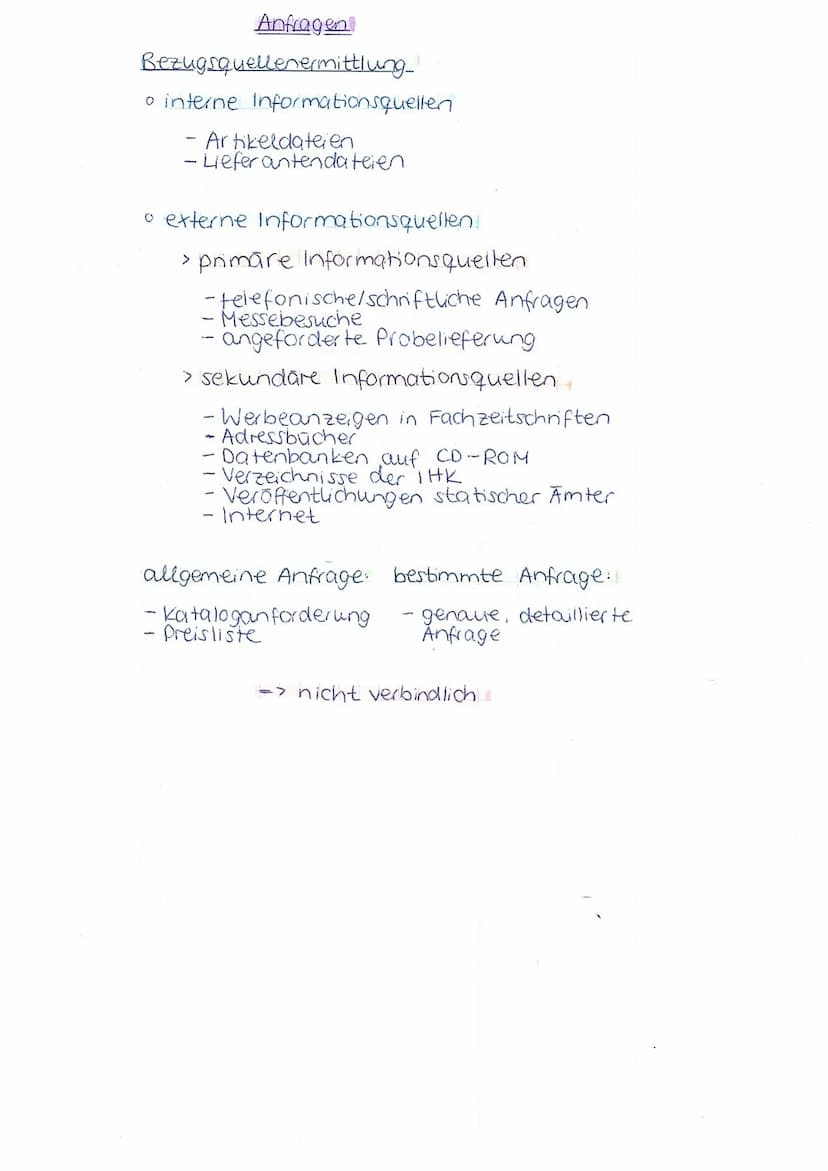 Anfragen
Bezugsquellenermittlung
o interne Informationsquellen
- Artikeldateien
- Lieferantendateien
o externe Informationsquellen
> primäre Informationsquellen
- telefonische/schriftliche Anfragen
- Messebesuche
- angeforderte Probelieferung
> sekundäre Informationsquellen
- Werbeanzeigen in Fachzeitschriften
- Adressbücher
- Datenbanken auf CD-ROM
- Verzeichnisse der IHK
- Veröffentlichungen statischer Ämter
- Internet
allgemeine Anfrage: bestimmte Anfrage:
- Kataloganforderung - genaue, detaillierte
- Preisliste Anfrage
-> nicht verbindlich